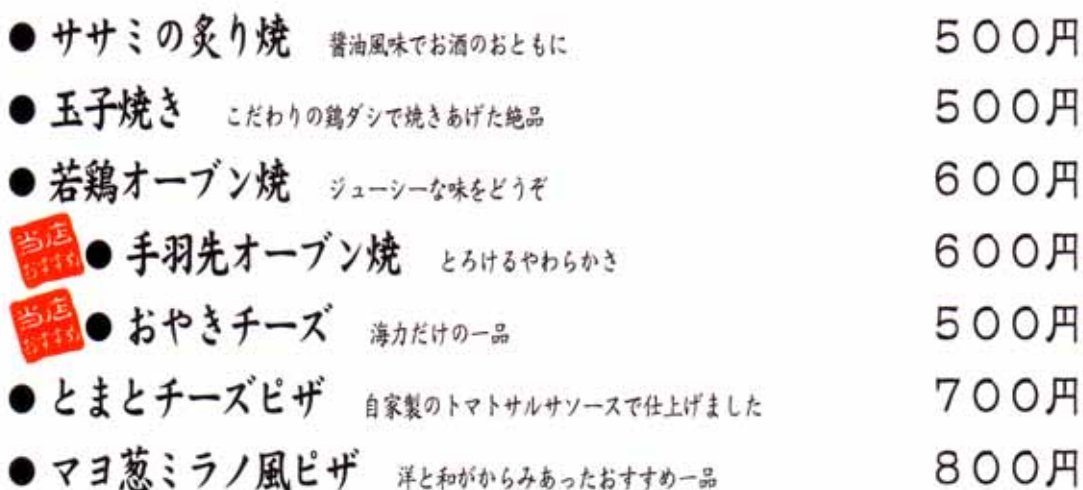 ● ササミの炙り焼 醤油風味でお酒のおともに 500円
● 玉子焼き こだわりの鶏ダシで焼きあげた絶品 500円
● 若鶏オーブン焼 ジューシーな味をどうぞ 600円
当店おすすめ ● 手羽先オーブン焼 とろけるやわらかさ 600円
当店おすすめ ● おやきチーズ 海力だけの一品 500円
● とまとチーズピザ 自家製のトマトサルサソースで仕上げました 700円
● マヨ葱ミラノ風ピザ 洋と和がからみあったおすすめ一品 800円